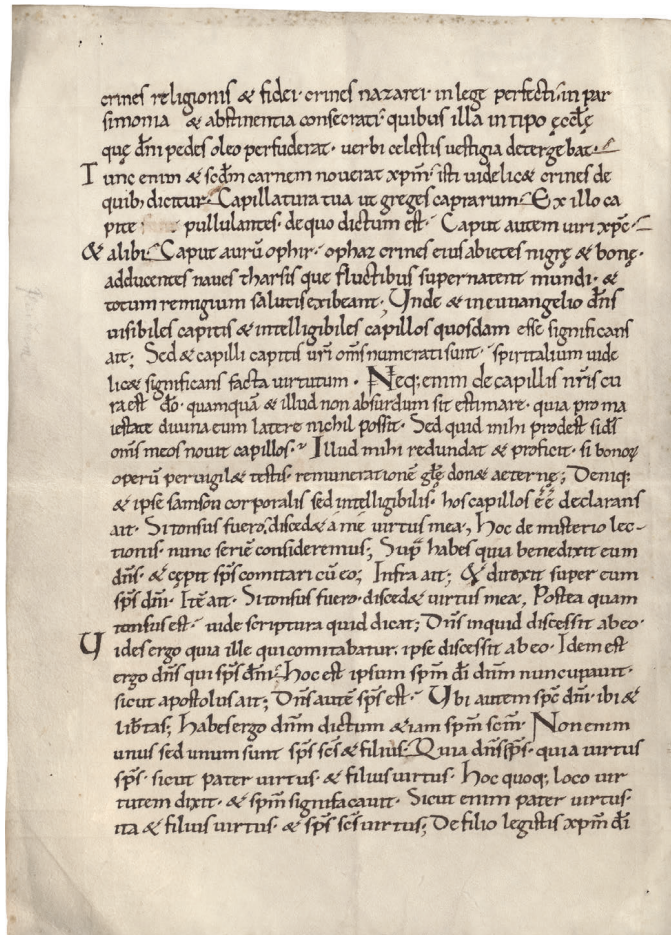 crines religionis & fidei· crines nazarei· in lege perfecti· in par
simonia & abstinentia consecrati· quibus illa in tipo ęcclę
quę dñi pedes oleo perfuderat· uerbi celestis uestigia detergebat·
Tunc enim & scdm carnem nouerat xpm̄· isti uidelic& crines de
quib; dicitur· Capillatura tua ut greges caprarum· Ex illo ca
pite pullulantes· de quo dictum est· Caput autem uiri xpc̄·
& alibi· Caput aurū ophir· ophaz crines eius abietes nigrę & bonę·
adducentes naues tharsis que fluctibus supernatent mundi· &
totum remigium salutis exibeant; Unde & in euuangelio dñs
uisibiles capitis & intelligibiles capillos quosdam esse significans
ait; Sed & capilli capitis uri oms numerati sunt· spiritalium uide
lic& significans facta uirtutum· Neq; enim de capillis nr̄is cu
ra est dō· quamquā & illud non absurdum sit estimare· quia pro ma
iestate diuina eum latere nichil possit· Sed quid mihi prodest si ds̄
oms meos nouit capillos· Illud mihi redundat & proficit· si bonoꝝ
operū peruigil& testis· remunerationē glę don& aeternę; Deniq;
& ipse samson corporalis sed intelligibilis· hos capillos eē declarans
ait· Si tonsus fuero, disced& a me uirtus mea, Hoc de misterio lec-
tionis· nunc seriē consideremus; Supͣ habes quia benedixit eum
dñs· & cępit sps̄ comitari cū eo; Infra ait; & direxit super eum
sps̄ dñi· Itē ait· Si tonsus fuero· disced& uirtus mea, Postea quam
tonsus est· uide scriptura quid dicat; Dñs inquid discessit ab eo·
Uides ergo quia ille qui comitabatur, ipse discessit ab eo· Idem est
ergo dñs qui sps̄ dñi· Hoc est ipsum spm̄ di dnm̄ nuncupauit·
sicut apostolus ait; Dñs autē sps̄ est· Ubi autem spc̄ dñi· ibi &
lib̄tas; Habes ergo dnm̄ dictum &iam spm̄ scm̄· Non enim
unus sed unum sunt sps̄ scs̄ & filius· Quia dñs sps̄· quia uirtus
sps̄· sicut pater uirtus· & filius uirtus· Hoc quoq; loco uir
tutem dixit· & spm̄ significauit· Sicut enim pater uirtus·
ita & filius uirtus· & sps̄ scs̄ uirtus; De filio legistis xpm̄ di